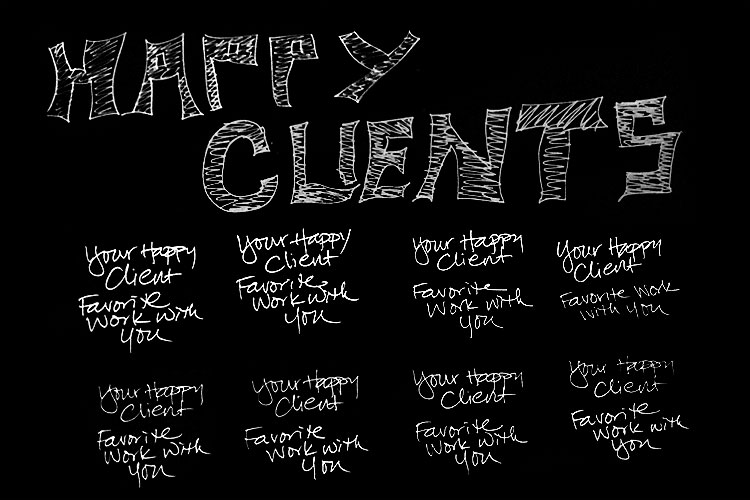 HAPPY
CLIENTS
Your Happy
Client
Favorite
Work with
You
Your Happy
Client
Favorite
Work with
You
Your Happy
Client
Favorite
Work with
You
Your Happy
Client
Favorite Work
with You
Your Happy
Client
Favorite
Work with
You
Your Happy
Client
Favorite
Work with
You
Your Happy
Client
Favorite
Work with
You
Your Happy
Client
Favorite
Work with
You